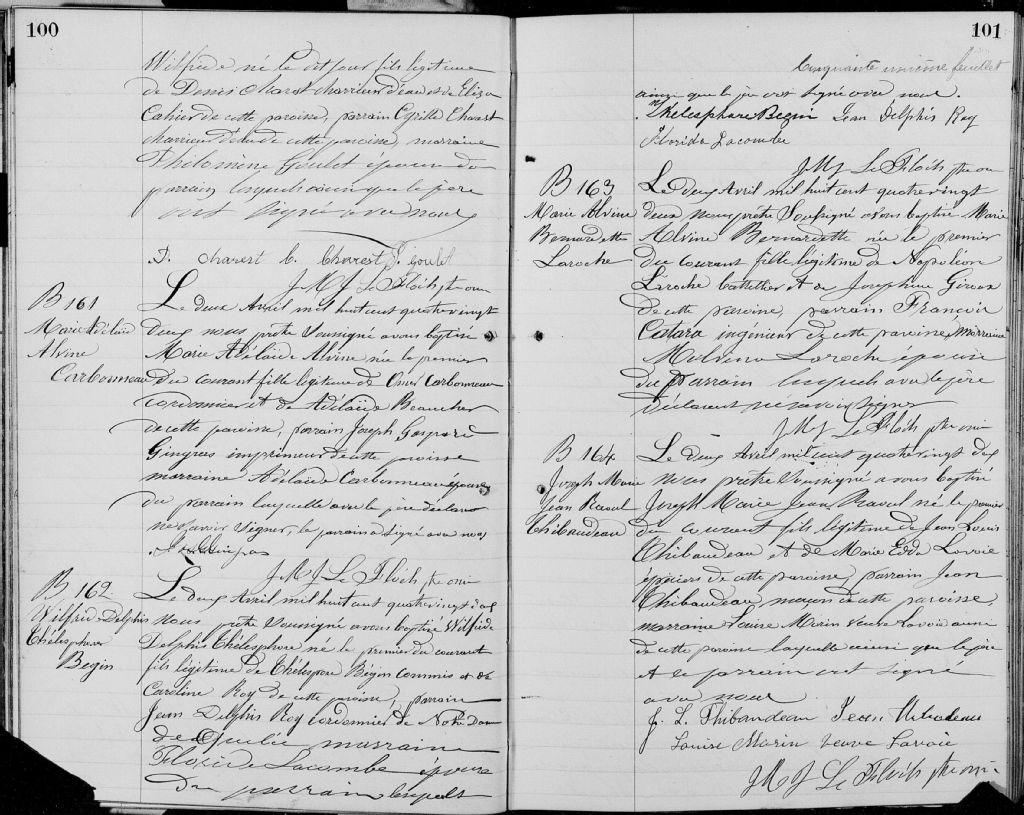 100
Wilfrid né le dit jour fils légitime
de Denis Charest charrieur d'eau et de Eliza
Cahier de cette paroisse, parrain Cyrille Charest
charrieur d'eau de cette paroisse, marraine
Philomène Goulet épouse du
parrain lesquels ainsi que le père
ont signé avec nous
D. Charest C. Charest P. Goulet
J M J Le Flóch ptre omi
B 161
Marie Adélaïde
Alvine
Carbonneau
Le deux Avril mil huit cent quatre vingt
deux nous prêtre soussigné avons baptisé
Marie Adélaïde Alvine née le premier
du courant fille légitime de Omer Carbonneau
cordonnier et de Adélaïde Beaucher
de cette paroisse, parrain Joseph Gaspard
Gingras imprimeur de cette paroisse
marraine Adélaïde Carbonneau épouse
du parrain laquelle avec le père déclare
ne savoir signer, le parrain a signé avec nous
J. G. Gingras
J M J Le Flóch ptre omi
B 162
Wilfrid Delphis
Thélesphore
Begin
Le deux Avril mil huit cent quatre vingt deux
Nous prêtre soussigné avons baptisé Wilfride
Delphis Thélesphore né le premier du courant
fils légitime de Thélespore Bégin commis et de
Caroline Roy de cette paroisse, parrain
Jean Delphis Roy Cordonnier de Notre Dame
de Québec marraine
Floride Lacombe épouse
du parrain lesquels
101
Cinquante unième feuillet
ainsi que le père ont signé avec nous.
Thélesphore Begin Jean Delphis Roy
Florida Lacombe
J M J Le Flóch ptre omi
B 163
Marie Alvine
Bernadette
Laroche
Le deux Avril mil huit cent quatre vingt
deux nous prêtre soussigné avons baptisé Marie
Alvine Bernadette née le premier
du courant fille légitime de Napoléon
Laroche batelier et de Josephine Giroux
de cette paroisse, parrain François
Catara ingénieur de cette paroisse, Marraine
Malvina Laroche épouse
du parrain lesquels avec le père
déclarent ne savoir signer
J M J Le Flóch ptre omi
B 164
Joseph Marie
Jean Raoul
Thibaudeau
Le deux Avril mil huit cent quatre vingt deux
Nous prêtre soussigné avons baptisé
Joseph Marie Jean Raoul né le premier
du courant fils légitime de Jean Louis
Thibaudeau et de Marie Edda Lavoie
épiciers de cette paroisse, parrain Jean
Thibaudeau maçon de cette paroisse,
marraine Louise Morin veuve Lavoie aussi
de cette paroisse laquelle ainsi que le père
et le parrain ont signé
avec nous
J. L. Thibaudeau Jean Thibaudeau
Louise Morin veuve Lavoie
J M J Le Flóch ptre omi